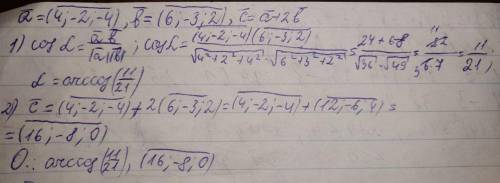 a̅=(4;-2;-4), b̅=(6;-3;2), c̅=a̅+2b̅
1) cos L = a̅·b̅/|a̅||b̅| ; cos L = (4;-2;-4)(6;-3;2)/√4²+2²+4² · √6²+3²+2² = 24+6-8/√36·√49 = 22/6·7 = 11/21 ;
L = arccos(11/21)
2) c̅ = (4;-2;-4)+2(6;-3;2) = (4;-2;-4)+(12;-6;4) =
= (16;-8;0)
O.: arccos(11/21), (16;-8;0)